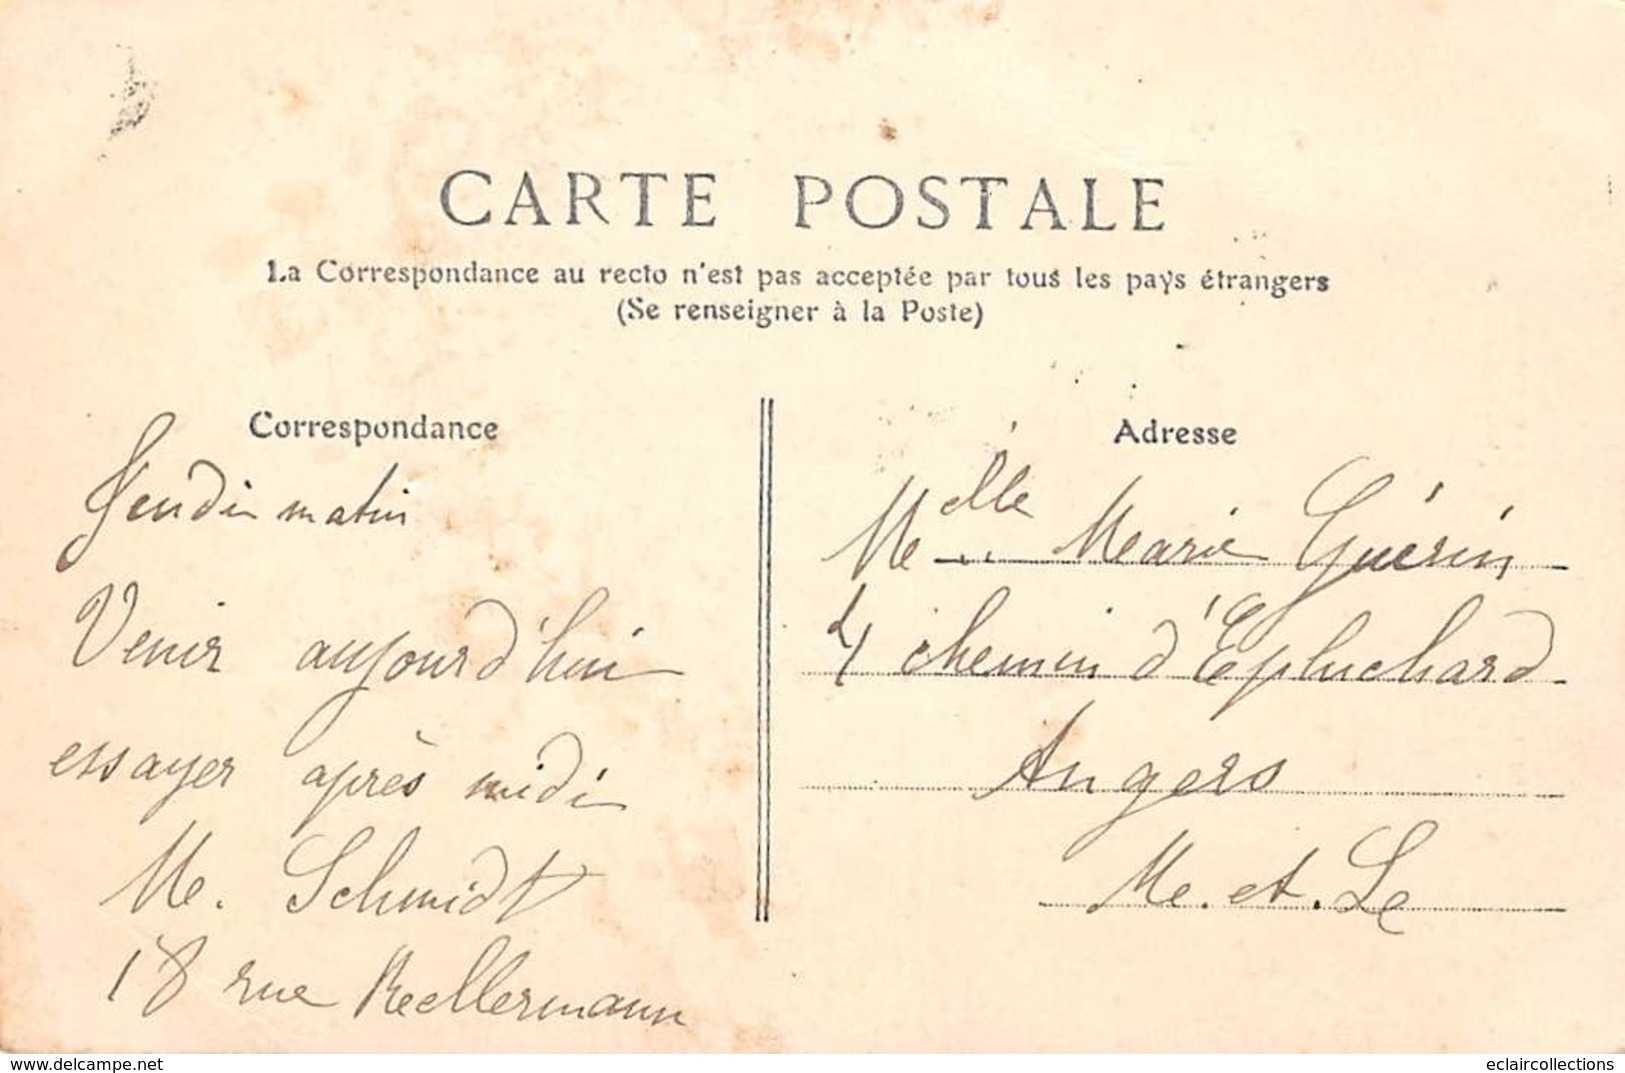 CARTE POSTALE
La Correspondance au recto n'est pas acceptée par tous les pays étrangers
(Se renseigner à la Poste)
Correspondance
Jeudi matin
Venir aujourd'hui
essayer après midi
Me. Schmidt
18 rue Kellermann
Adresse
Melle Marie Guérin
4 chemin d'Epluchard
Angers
Me. et. Le
www.delcampe.net
eclaircollections